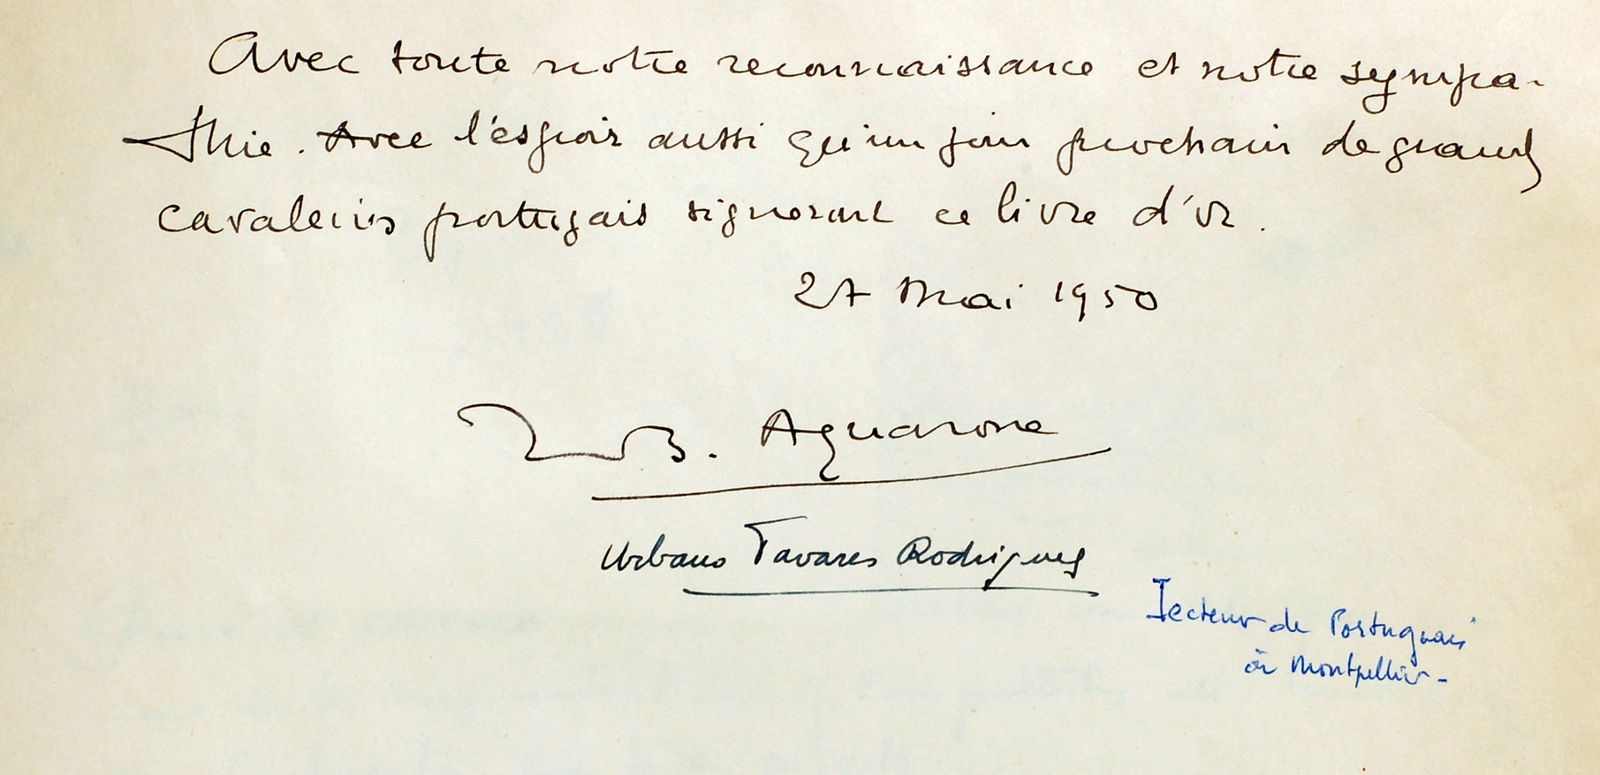 Avec toute notre reconnaissance et notre sympa-
thie. Avec l'espoir aussi qu'un jour prochain de grands
cavaliers portugais signeront ce livre d'or.
27 Mai 1950
B. Aquarone
Urbano Tavares Rodrigues
Lecteur de Portugais
à Montpellier-